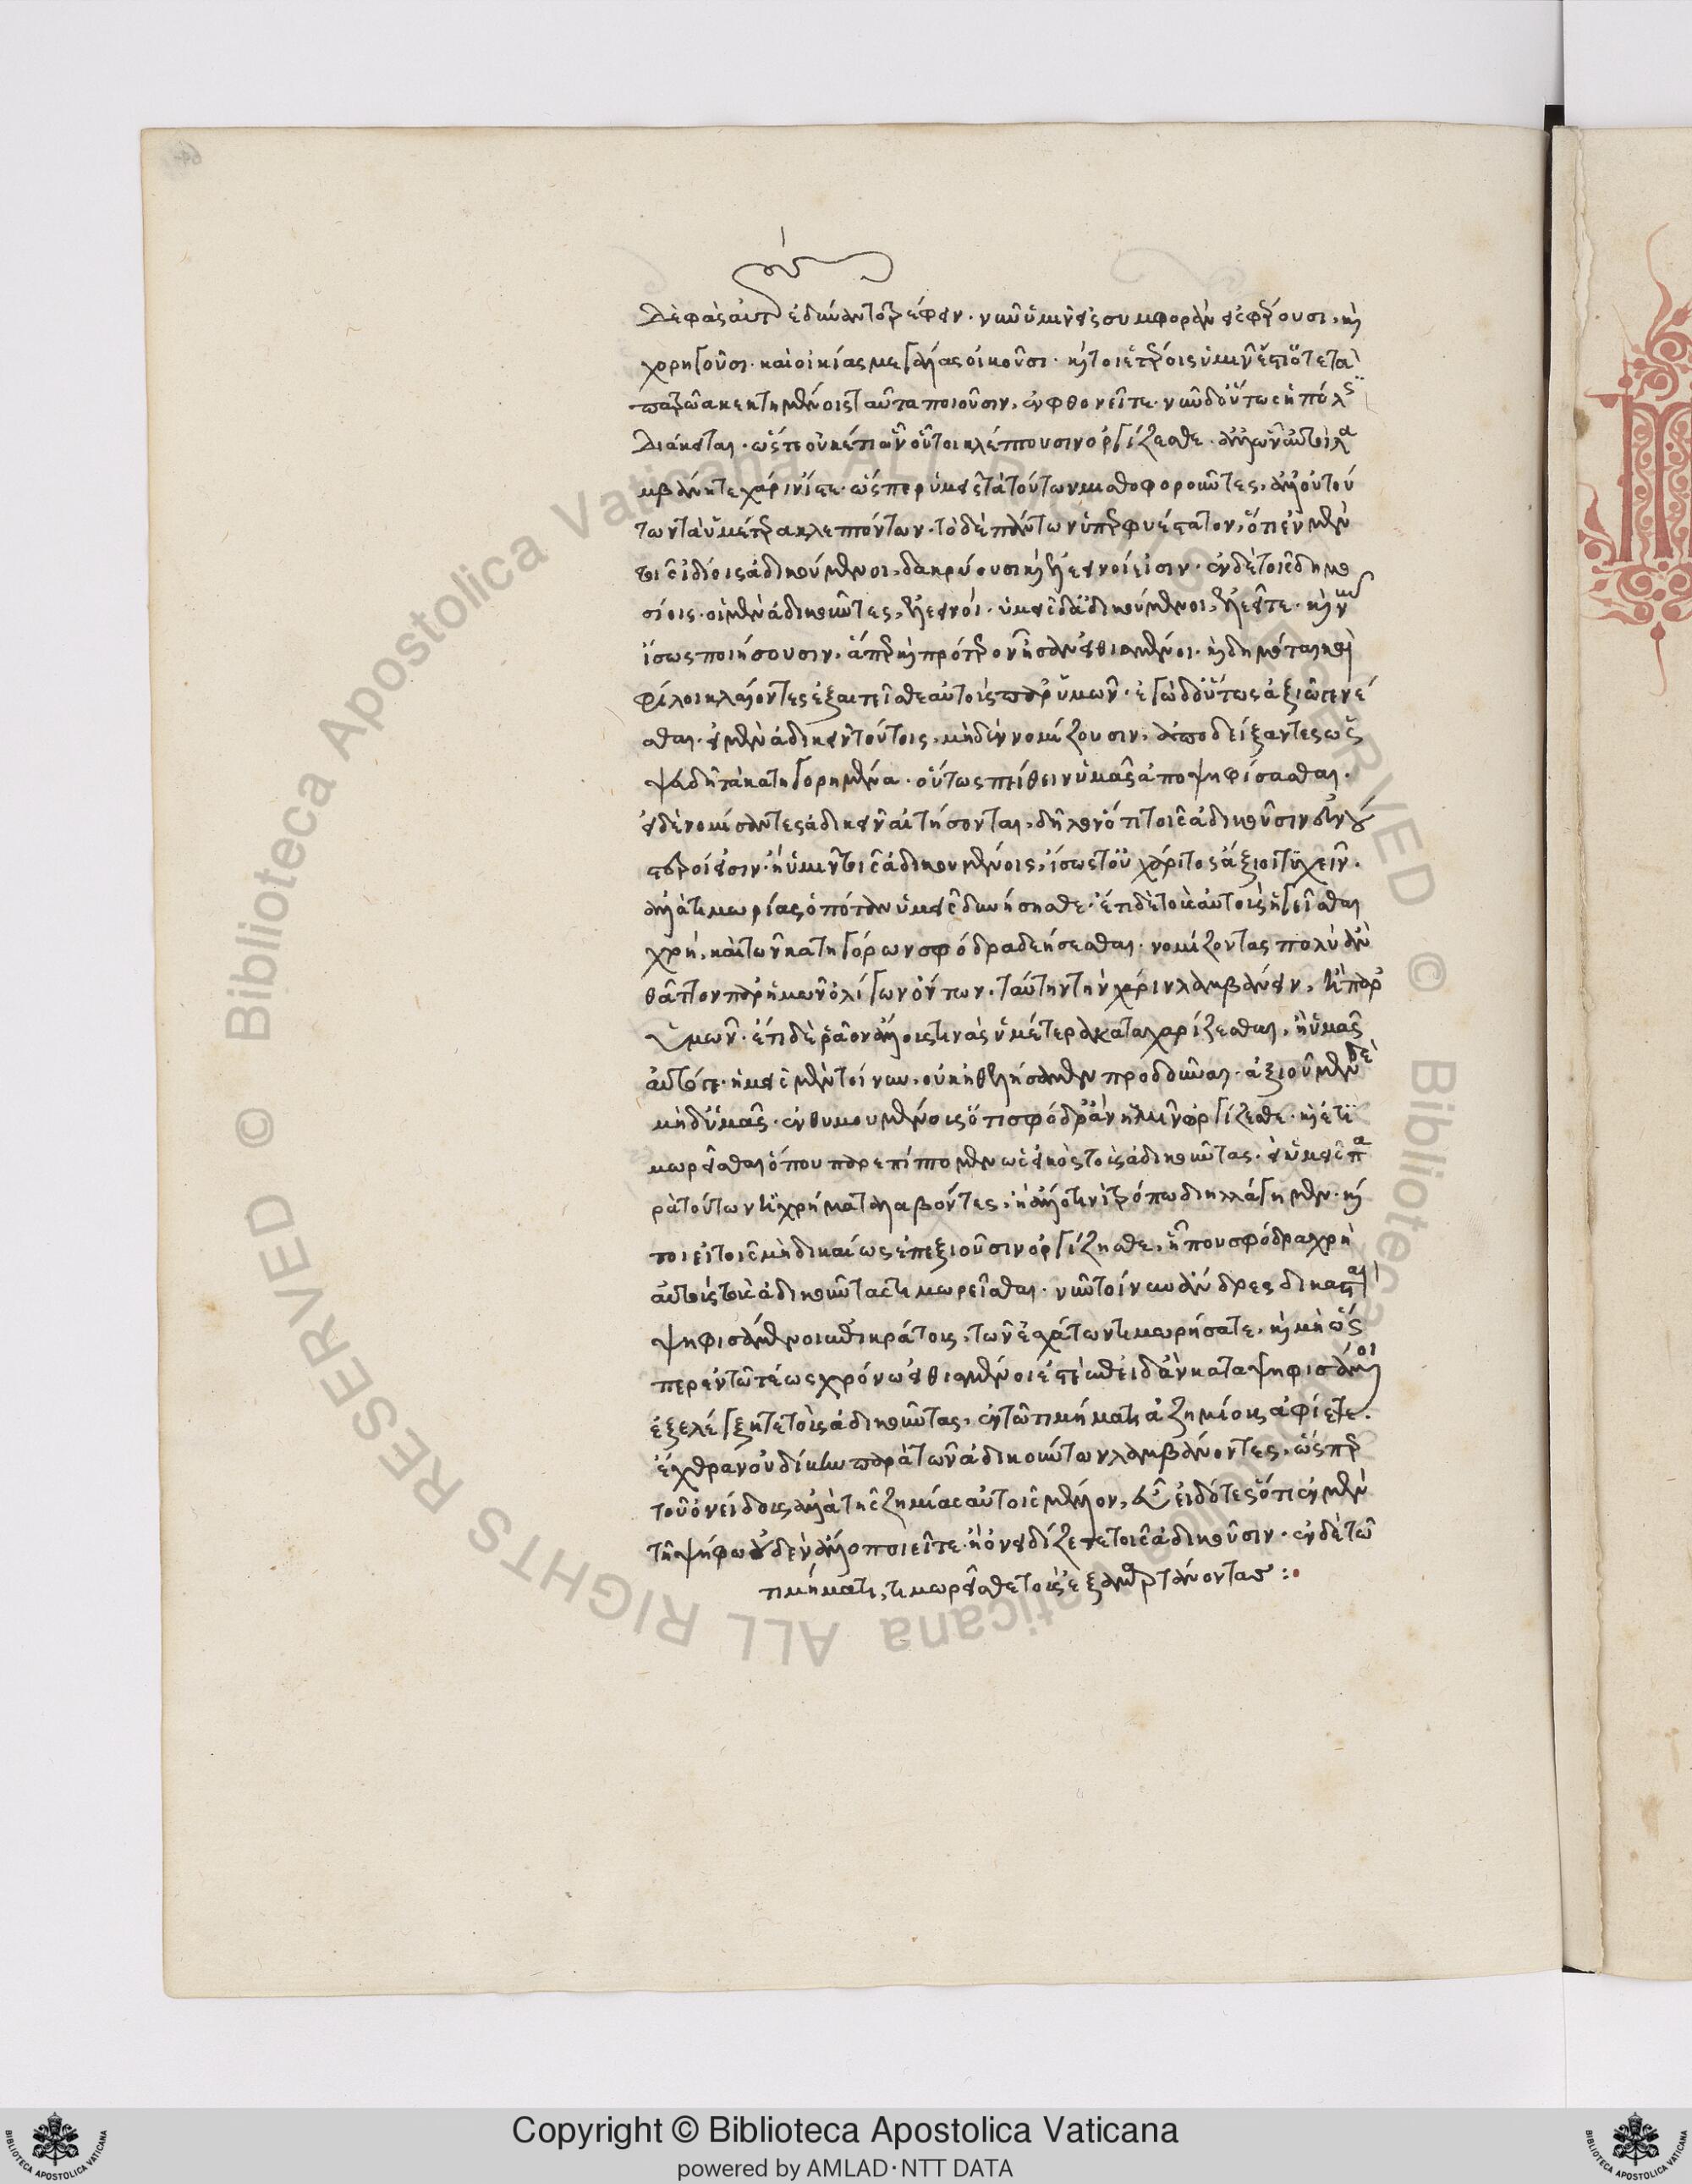 δὲ σφᾶς αὐτοὺς ἐδύναντο τρέφειν. νῦν ὑμῖν εἰς συμφορὰν εἰσφέρουσι, καὶ
χορηγοῦσι. καὶ οἰκίας μεγάλας οἰκοῦσι. καίτοι ἑτέροις ὑμῖν ἔστιν ὅτε τὰ
πατρῶα κεκτημένοις ταῦτα ποιοῦσιν, ἐφθονεῖτε. νῦν δ' οὕτως ἡ πόλις
διάκειται. ὥστε οὐκέτι ὧν οὗτοι κλέπτουσιν ὀργίζεσθε. ἀλλ' ὧν αὐτοὶ λα
μβάνητε χάριν ἴστε. ὥσπερ ὑμεῖς τὰ τούτων μισθοφοροῦντες, ἀλλ' οὐ τού
των τὰ ὑμέτερα κλεπτόντων. τὸ δὲ πάντων ὑπερφυέστατον, ὅτι ἐν μὲν
τοῖς ἰδίοις ἀδικούμενοι, δακρύουσι καὶ ἐλεεινοί εἰσιν. ἐν δὲ τοῖς δημο
σίοις. οἱ μὲν ἀδικοῦντες, ἐλεεινοί. ὑμεῖς δ' ἀδικούμενοι, ἐλεεῖτε. καὶ νῦν
ἴσως ποιήσουσιν, ἅπερ καὶ πρότερον ἦσαν εἰθισμένοι. καὶ δημόται καὶ
φίλοι κλαίοντες ἐξαιτεῖσθε αὐτοὺς παρ' ὑμῶν. ἐγὼ δ' οὕτως ἀξιῶ γενέ
σθαι. εἰ μὲν ἀδικεῖν τούτοις, μηδὲν νομίζουσιν, ἀποδείξαντες ὡς
ψευδῆ τὰ κατηγορημένα. οὕτως πείθειν ὑμᾶς ἀποψηφίσασθαι.
εἰ δὲ νομίσαντες ἀδικεῖν αἰτήσονται, δῆλον ὅτι τοῖς ἀδικοῦσιν εὐνού
στεροί εἰσιν. ἢ ὑμῖν τοῖς ἀδικουμένοις, ἴσως τοῦ χάριτος ἄξιοι τυχεῖν.
ἀλλὰ τιμωρίας ὁπόταν ὑμεῖς δυνήσησθε. ἔτι δὲ τοὺς αὐτοὺς ἡγεῖσθαι
χρή, καὶ τῶν κατηγόρων σφόδρα δεήσεσθαι. νομίζοντας πολὺ ἂν
θᾶττον παρ' ἡμῶν ὀλίγων ὄντων. ταύτην τὴν χάριν λαμβάνειν, ἢ παρ'
ὑμῶν. ἔτι δὲ ῥᾷον ἄλλους τινὰς ὑμέτερα καταχαρίζεσθαι, ἢ ὑμᾶς
αὐτούς. ἡμεῖς μὲν τοίνυν, οὐκ ἠθελήσαμεν προδοῦναι. ἀξιοῦμεν δὲ
μηδ' ὑμᾶς. ἐνθυμουμένους ὅτι σφόδρ' ἂν ἡμῖν ὀργίζεσθε. καὶ ἐτι
μωρεῖσθαι ὅπου παρεπίπτομεν ὡς εἰκὸς τοὺς ἀδικοῦντας. εἰ ὑμεῖς πα
ρὰ τούτων ἢ χρήματα λαβόντες, ἢ ἄλλῳ τινὶ τρόπω διηλλάγημεν. καί
τοι εἰ τοῖς μὴ δικαίως ἐπεξιοῦσιν ὀργίζησθε, ἦ που σφόδρα χρὴ
αὐτοὺς τοὺς ἀδικοῦντας τιμωρεῖσθαι. νῦν τοίνυν ἄνδρες δικασταὶ
ψηφισάμενοι ἐπικράτους, τῶν ἐσχάτων τιμωρήσατε, καὶ μὴ ὥς
περ ἐν τῶ τέως χρόνω εἰθισμένοι ἐστὲ ἐπειδὰν καταψηφισάμενοι
ἐξελέγξητε τοὺς ἀδικοῦντας, ἐν τῶ τιμήματι ἀζημίους ἀφίετε.
ἔχθραν οὐ δίκην παρὰ τῶν ἀδικούντων λαμβάνοντες, ὥσπερ
τοῦ ὀνείδους ἀλλὰ τῆς ζημίας αὐτοῖς μέλον, εὖ εἰδότες ὅτι ἐν μὲν
τῆ ψήφω οὐδὲν ἄλλο ποιεῖτε. ἢ ὀνειδίζετε τοῖς ἀδικοῦσιν. ἐν δὲ τῶ
τιμήματι, τιμωρεῖσθε τοὺς ἐξαμαρτάνοντας :